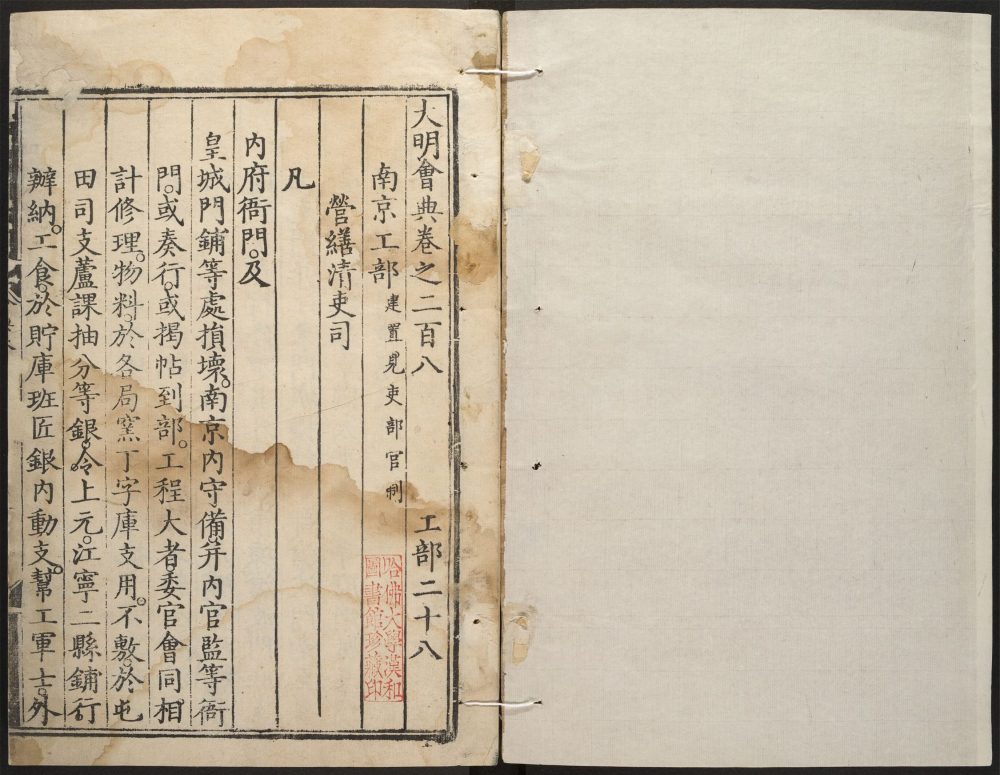 大明會典卷之二百八 工部二十八
南京工部 建置見吏部官制
營繕清吏司
凡
內府衙門。及
皇城門鋪等處損壞。南京內守備。并內官監等衙
門。或奏行。或揭帖到部。工程大者。委官會同。相
計修理。物料。於各局窯丁字庫支用。不敷。於屯
田司支蘆課抽分等銀。令上元。江寧二縣鋪行
辦納。工食。於貯庫班匠銀內動支。幫工軍士。外
哈佛大學漢和
圖書館珍藏印